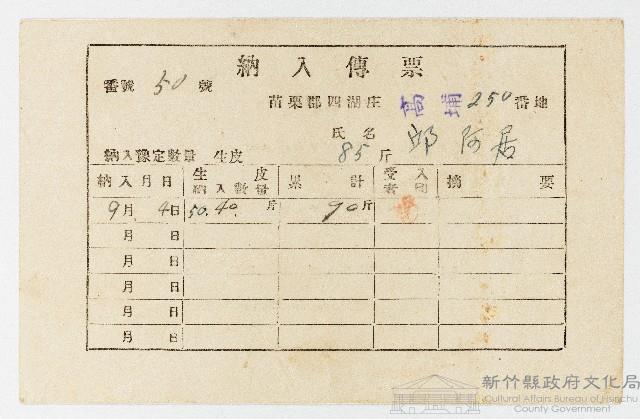 納入傳票
番號 50 號
苗栗郡四湖庄 高埔 250 番地
氏名 邱阿居
納入豫定數量 生皮 85 斤
納入月日 生皮納入數量 累計 受入者印 摘要
9月 4日 50.40. 斤 90斤
月 日
月 日
月 日
月 日
月 日
新竹縣政府文化局
Cultural Affairs Bureau of Hsinchu
County Government